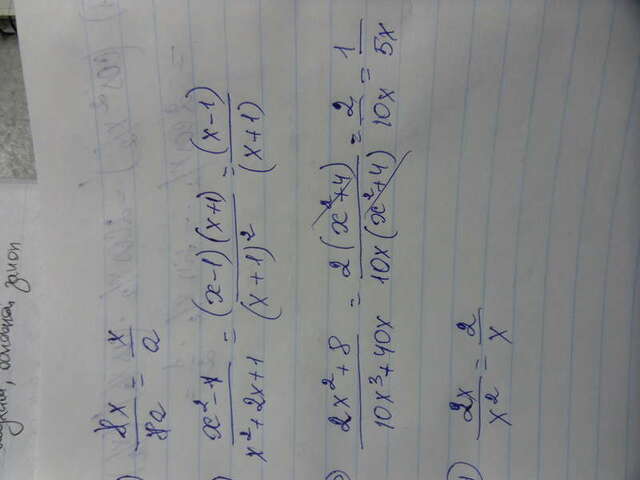 основной закон
) 8x/8a = x/a
) x²-1/x²+2x+1 = (x-1)(x+1)/(x+1)² = (x-1)/(x+1)
3) 2x²+8/10x³+40x = 2(x²+4)/10x(x²+4) = 2/10x = 1/5x
) 2x/x² = 2/x